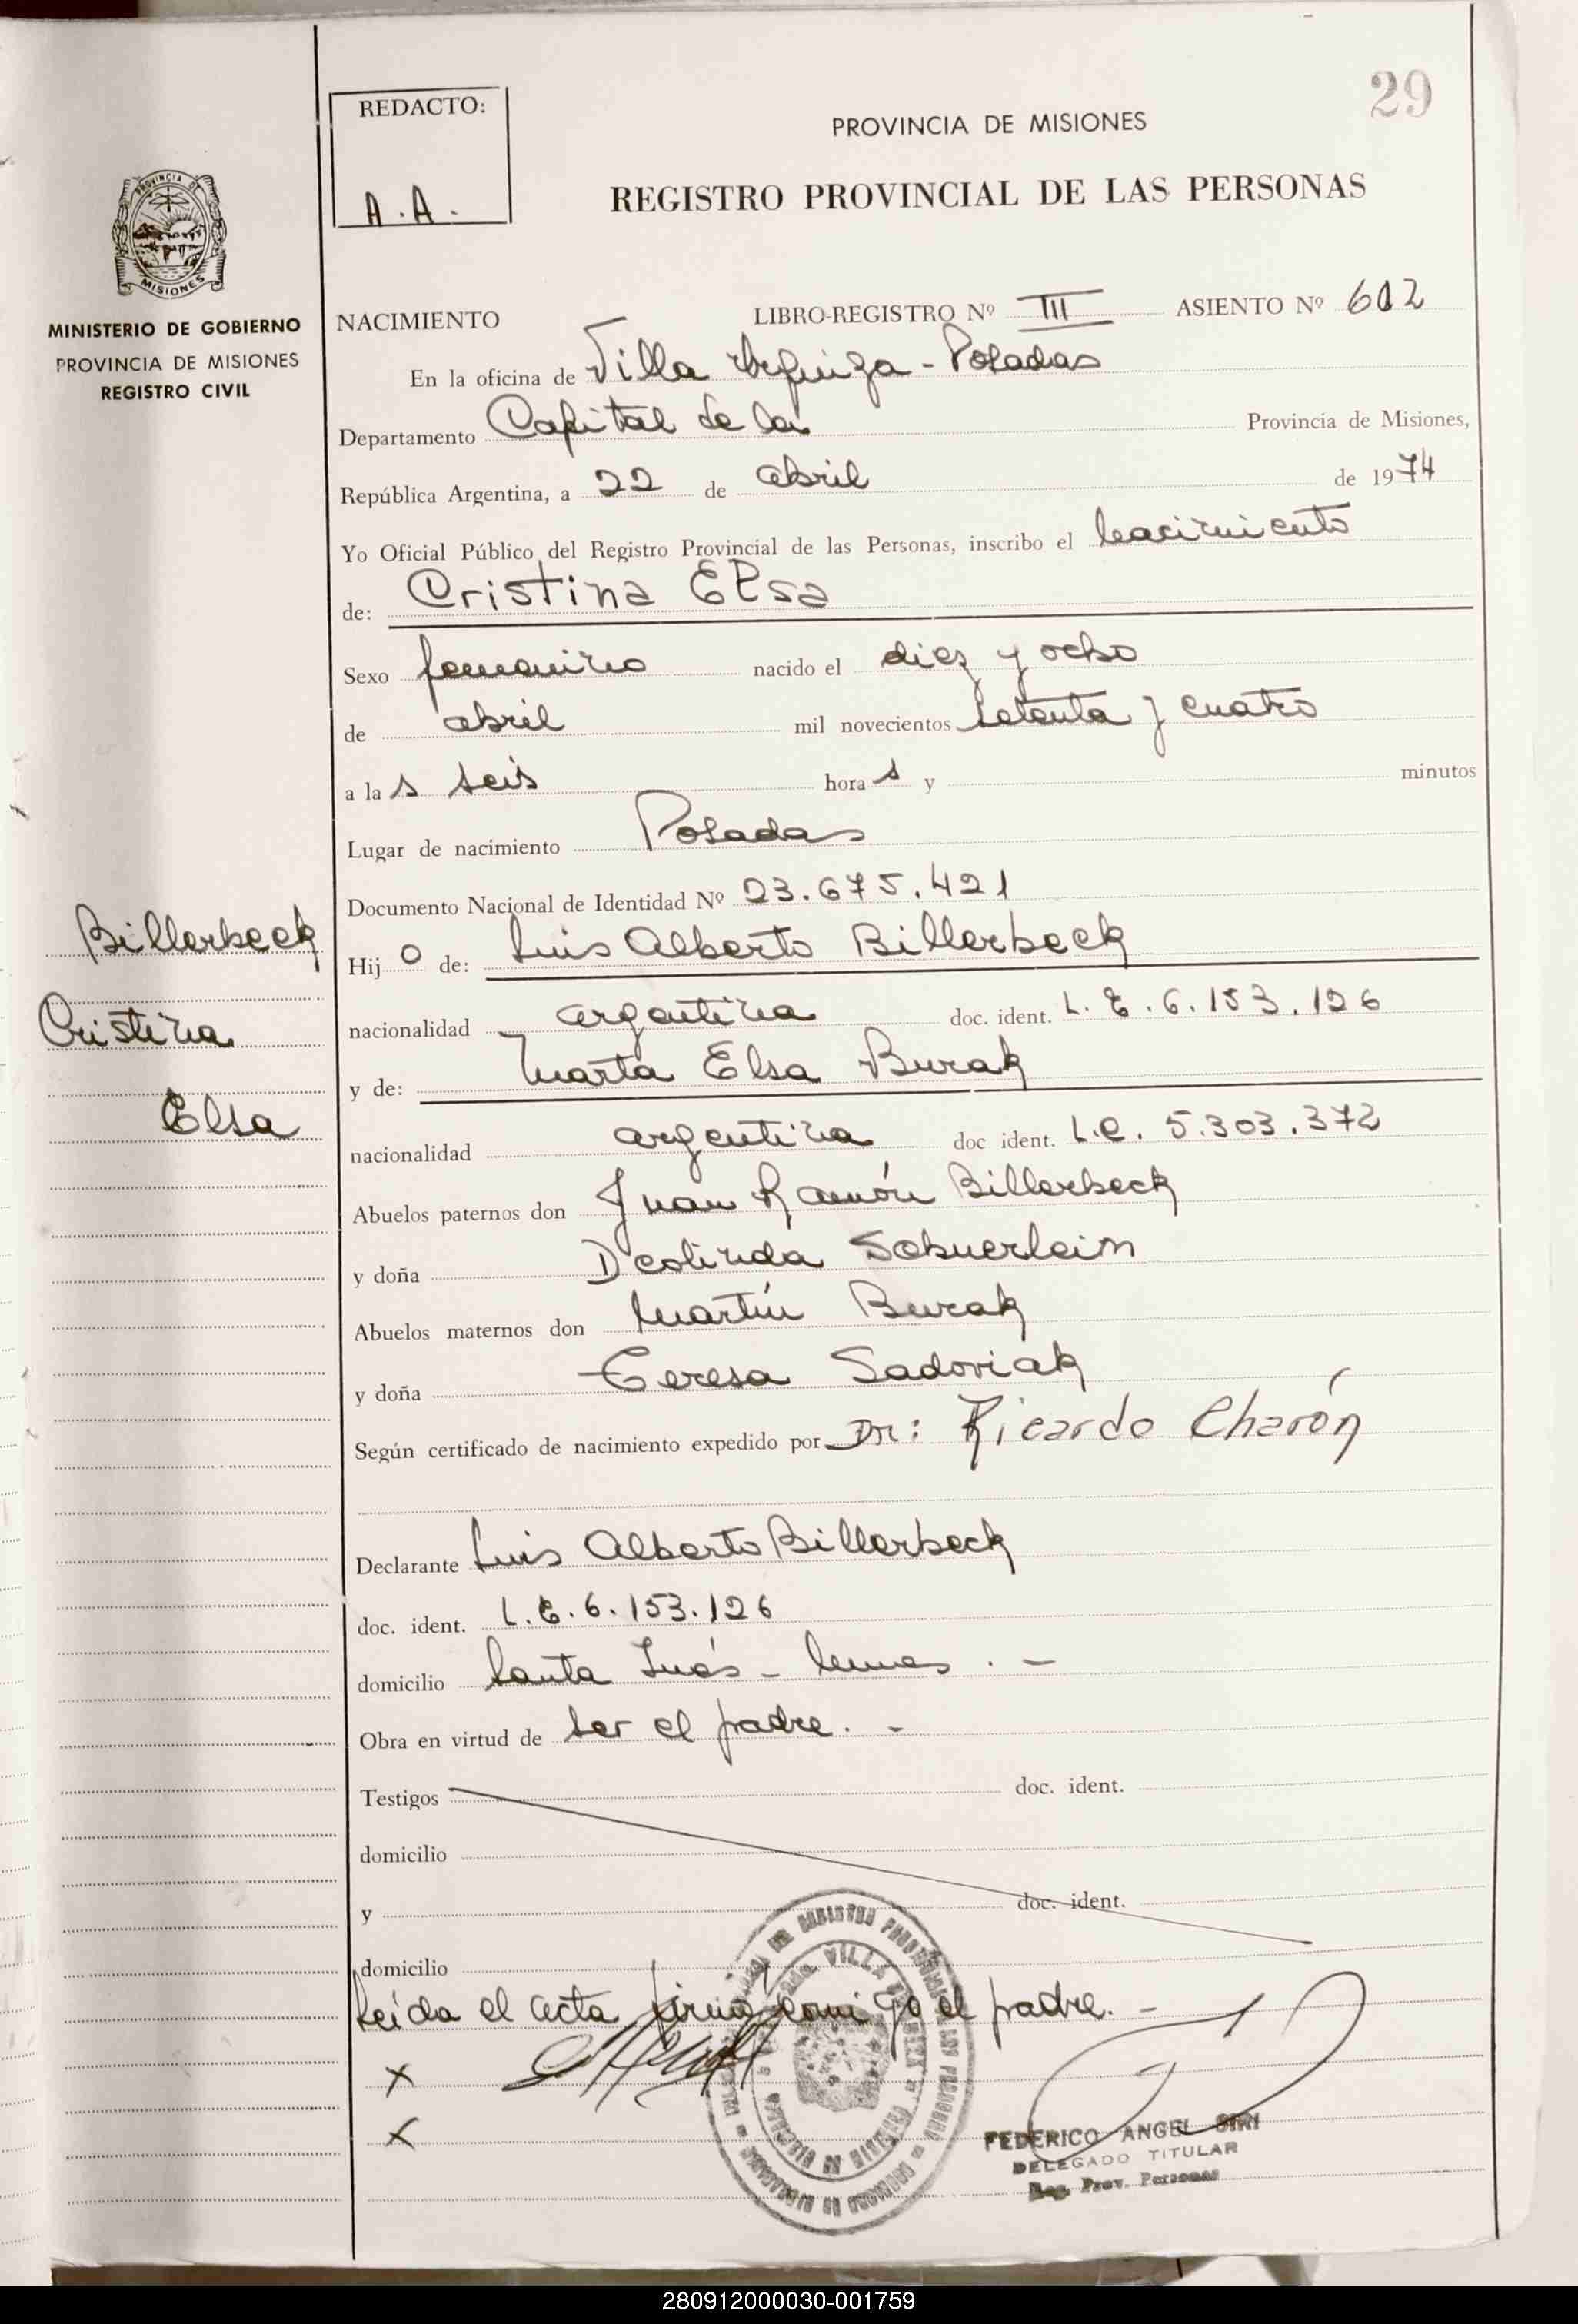 29
REDACTO:
A.A.
PROVINCIA DE MISIONES
REGISTRO PROVINCIAL DE LAS PERSONAS
PROVINCIA DE
MISIONES
MINISTERIO DE GOBIERNO
PROVINCIA DE MISIONES
REGISTRO CIVIL
NACIMIENTO LIBRO-REGISTRO Nº III ASIENTO Nº 602
En la oficina de Villa Urquiza - Posadas
Departamento Capital de la Provincia de Misiones,
República Argentina, a 22 de abril de 1974
Yo Oficial Público del Registro Provincial de las Personas, inscribo el nacimiento
de: Cristina Elsa
Sexo femenino nacido el diez y ocho
de abril mil novecientos setenta y cuatro
a la s seis hora s y minutos
Lugar de nacimiento Posadas
Documento Nacional de Identidad Nº 23.675.421
Billerbeck
Cristina
Elsa
Hij o de: Luis Alberto Billerbeck
nacionalidad argentina doc. ident. L.E.6.153.126
y de: Marta Elsa Burak
nacionalidad argentina doc ident. L.C. 5.303.372
Abuelos paternos don Juan Ramón Billerbeck
y doña Deolinda
Abuelos maternos don Martín Burak
y doña Teresa Sadoviak
Según certificado de nacimiento expedido por Dr: Ricardo Charón
Declarante Luis Alberto Billerbeck
doc. ident. L.E.6.153.126
domicilio Santa Inés -
Obra en virtud de ser el padre. -
Testigos doc. ident.
domicilio
y doc. ident.
domicilio
Leída el acta firma conmigo el padre. -
x
x
FEDERICO ANGEL SIRI
DELEGADO TITULAR
Reg. Prov. Personas
280912000030-001759